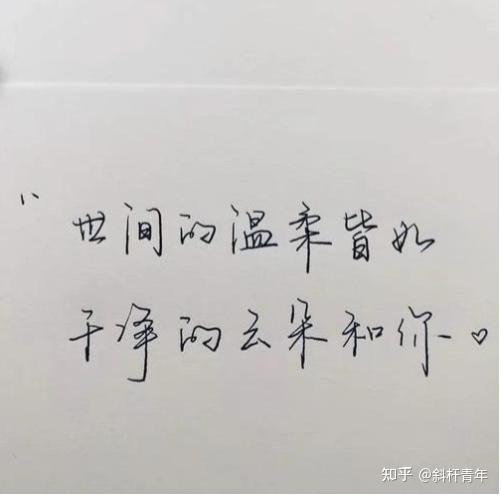 "世间的温柔皆如
干净的云朵和你。♡
知乎 @斜杆青年